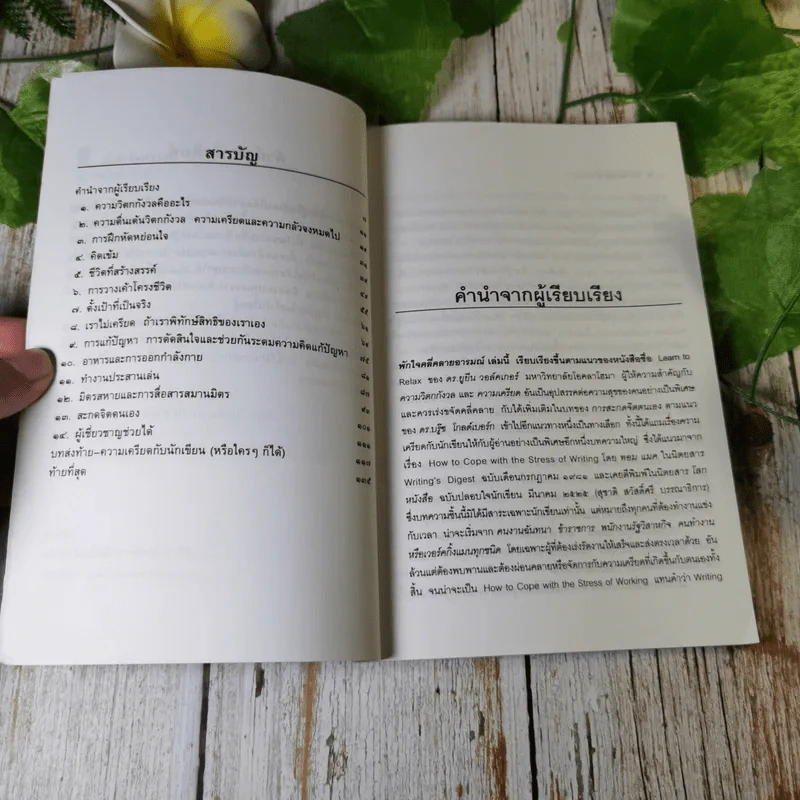 สารบัญ
คำนำจากผู้เรียบเรียง
๑. ความวิตกกังวลคืออะไร ๗
๒. ความตื่นเต้นวิตกกังวล ความเครียดและความกลัวจงหมดไป
๓. การฝึกหัดหย่อนใจ
๔. คิดเข้ม
๕. ชีวิตที่สร้างสรรค์
๖. การวางเค้าโครงชีวิต
๗. ตั้งเป้าที่เป็นจริง ๕๕
๘. เราไม่เครียด ถ้าเราพิทักษ์สิทธิของเราเอง
๙. การแก้ปัญหา การตัดสินใจและช่วยกันระดมความคิดแก้ปัญหา ๖๙
๑๐. อาหารและการออกกำลังกาย ๗๕
๑๑. ทำงานประสานเล่น ๘๑
๑๒. มิตรสหายและการสื่อสารสมานมิตร ๘๗
๑๓. สะกดจิตตนเอง
๑๔. ผู้เชี่ยวชาญช่วยได้ ๑๐๑
บทส่งท้าย-ความเครียดกับนักเขียน (หรือใครๆ ก็ได้) ๑๑๑
ท้ายที่สุด ๑๑๗
๑๓๕
คำนำจากผู้เรียบเรียง
พักใจคลี่คลายอารมณ์ เล่มนี้ เรียบเรียงขึ้นตามแนวของหนังสือชื่อ Learn to
Relax ของ ดร.ยูยีน วอล์คเกอร์ มหาวิทยาลัยโอคลาโฮมา ผู้ให้ความสำคัญกับ
ความวิตกกังวล และ ความเครียด อันเป็นอุปสรรคต่อความสุขของคนอย่างเป็นพิเศษ
และควรเร่งขจัดคลี่คลาย กับได้เพิ่มเติมในบทของ การสะกดจิตตนเอง ตามแนว
ของ ดร.บรู๊ซ โกลด์เบอร์ก เข้าไปอีกแนวทางหนึ่งเป็นทางเลือก ทั้งนี้ได้แถมเรื่องความ
เครียดกับนักเขียนให้กับผู้อ่านอย่างเป็นพิเศษอีกหนึ่งบทความใหญ่ ซึ่งได้แนวมาจาก
เรื่อง How to Cope with the Stress of Writing โดย ทอม แมค ในนิตยสาร
Writing's Digest ฉบับเดือนกรกฎาคม ๑๙๘๑ และเคยตีพิมพ์ในนิตยสาร โลก
หนังสือ ฉบับปลอบใจนักเขียน มีนาคม ๒๕๒๕ (สุชาติ สวัสดิ์ศรี บรรณาธิการ)
ซึ่งบทความชิ้นนี้มิได้มีสาระเฉพาะนักเขียนเท่านั้น แต่หมายถึงทุกคนที่ต้องทำงานแข่ง
กับเวลา น่าจะเริ่มจาก คนงานฉันทนา ข้าราชการ พนักงานรัฐวิสาหกิจ คนทำงาน
หรือเวอร์คกิ้งแมนทุกชนิด โดยเฉพาะผู้ที่ต้องเร่งรัดงานให้เสร็จและส่งตรงเวลาด้วย อัน
ล้วนแต่ต้องพบพานและต้องผ่อนคลายหรือจัดการกับความเครียดที่เกิดขึ้นกับตนเองทั้ง
สิ้น จนน่าจะเป็น How to Cope with the Stress of Working แทนคำว่า Writing